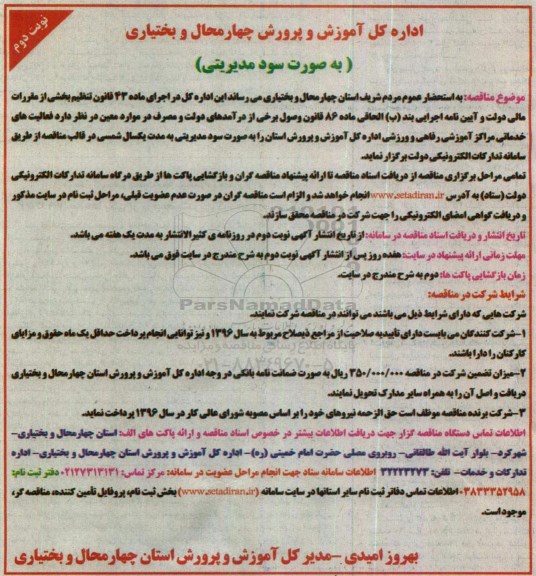 نوبت دوم
اداره کل آموزش و پرورش چهارمحال و بختیاری
( به صورت سود مدیریتی)
موضوع مناقصه: به استحضار عموم مردم شریف استان چهارمحال و بختیاری می رساند این اداره کل در اجرای ماده ۴۳ قانون تنظیم بخشی از مقررات
مالی دولت و آیین نامه اجرایی بند (ب) الحاقی ماده ۸۶ قانون وصول برخی از درآمدهای دولت و مصرف در موارد معین در نظر دارد فعالیت های
خدماتی مراکز آموزشی رفاهی و ورزشی اداره کل آموزش و پرورش استان را به صورت سود مدیریتی به مدت یکسال شمسی در قالب مناقصه از طریق
سامانه تدارکات الکترونیکی دولت برگزار نماید.
تمامی مراحل برگزاری مناقصه از دریافت اسناد مناقصه تا ارائه پیشنهاد مناقصه گران و بازگشایی پاکت ها از طریق درگاه سامانه تدارکات الکترونیکی
دولت (ستاد) به آدرس www.setadiran.ir انجام خواهد شد و الزام است مناقصه گران در صورت عدم عضویت قبلی، مراحل ثبت نام در سایت مذکور
و دریافت گواهی امضای الکترونیکی را جهت شرکت در مناقصه محقق سازند.
تاریخ انتشار و دریافت اسناد مناقصه در سامانه: از تاریخ انتشار آگهی نوبت دوم در روزنامه ی کثیرالانتشار به مدت یک هفته می باشد.
مهلت زمانی ارائه پیشنهاد در سایت: هفده روز پس از انتشار آگهی نوبت دوم به شرح مندرج در سایت فوق می باشد.
زمان بازگشایی پاکت ها: دوم به شرح مندرج در سایت.
شرایط شرکت در مناقصه:
شرکت هایی که دارای شرایط ذیل می باشند می توانند در مناقصه شرکت نمایند.
۱-شرکت کنندگان می بایست دارای تأییدیه صلاحیت از مراجع ذیصلاح مربوط به سال ۱۳۹۶ و نیز توانایی انجام پرداخت حداقل یک ماه حقوق و مزایای
کارکنان را دارا باشند.
۲-میزان تضمین شرکت در مناقصه ۳۵۰/۰۰۰/۰۰۰ ریال به صورت ضمانت نامه بانکی در وجه اداره کل آموزش و پرورش استان چهارمحال و بختیاری
دریافت و اصل آن را به همراه سایر مدارک تحویل نمایند.
۳-شرکت برنده مناقصه موظف است حق الزحمه نیروهای خود را بر اساس مصوبه شورای عالی کار در سال ۱۳۹۶ پرداخت نماید.
اطلاعات تماس دستگاه مناقصه گزار جهت دریافت اطلاعات بیشتر در خصوص اسناد مناقصه و ارائه پاکت های الف: استان چهارمحال و بختیاری-
شهرکرد- بلوار آیت الله طالقانی- روبروی مصلی حضرت امام خمینی (ره)- اداره کل آموزش و پرورش استان چهارمحال و بختیاری- اداره
تدارکات و خدمات- تلفن: ۳۲۲۲۳۲۷۳ اطلاعات سامانه ستاد جهت انجام مراحل عضویت در سامانه: مرکز تماس: ۰۲۱۲۷۳۱۳۱۳۱ دفتر ثبت نام:
۰۳۸۳۳۳۵۲۹۵۸ اطلاعات تماس دفاتر ثبت نام سایر استانها در سایت سامانه (www.setadiran.ir) بخش ثبت نام، پروفایل تأمین کننده، مناقصه گر،
موجود است.
بهروز امیدی -مدیر کل آموزش و پرورش استان چهارمحال و بختیاری
ParsNamadData